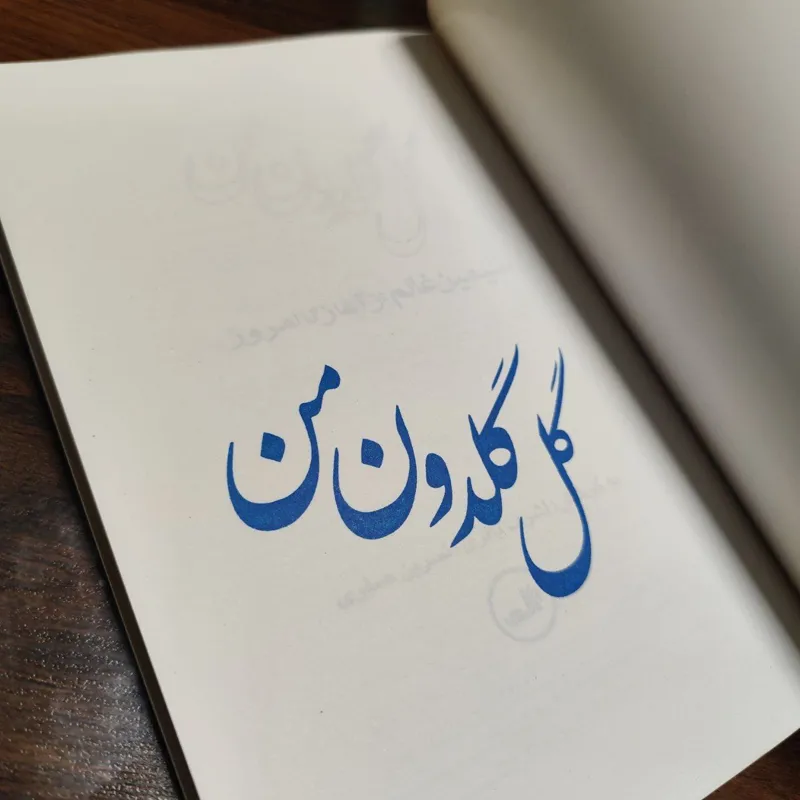 گل گلدون من